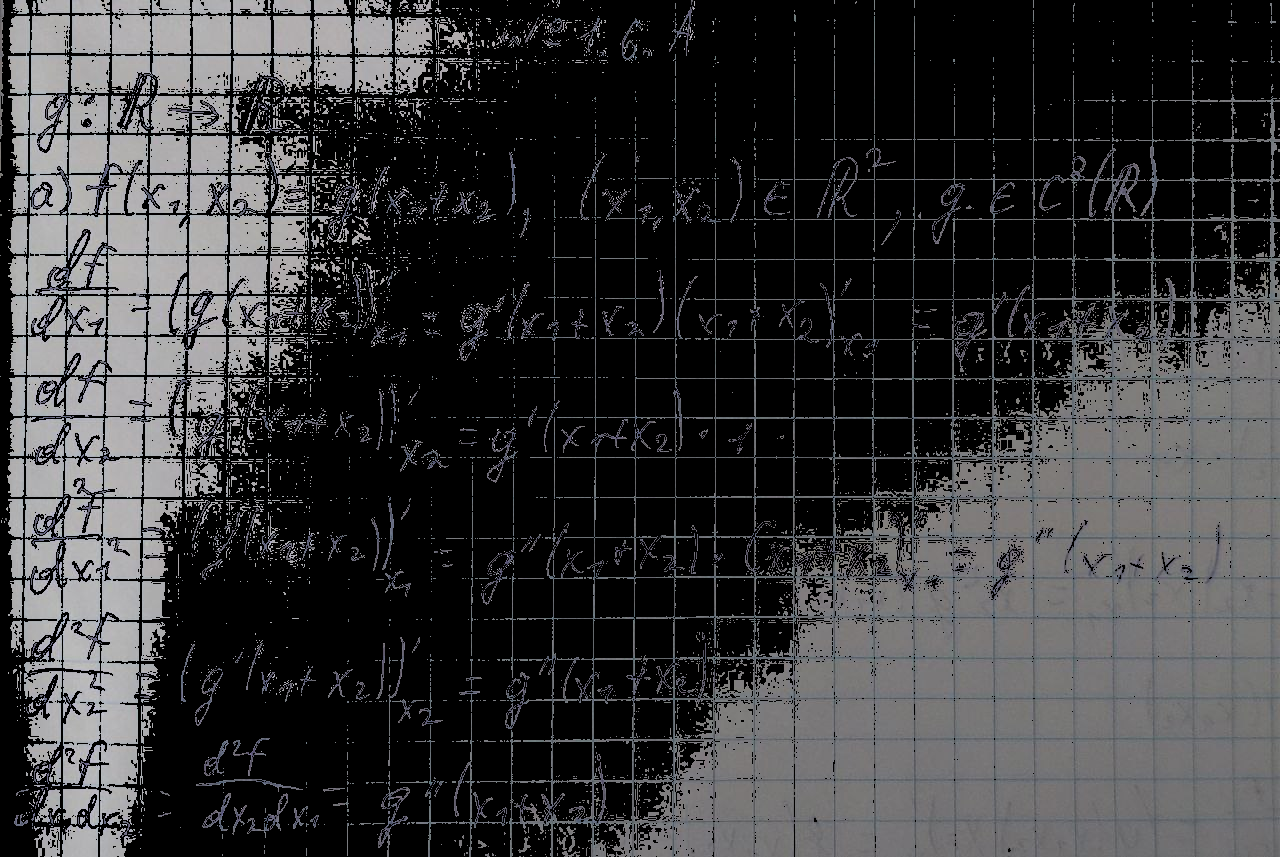 № 1.6. A
g: ℝ → ℝ
a) f(x₁, x₂) = g(x₁+x₂), (x₁, x₂) ∈ ℝ², g ∈ C²(ℝ)
df/dx₁ = (g(x₁+x₂))'ₓ₁ = g'(x₁+x₂)(x₁+x₂)'ₓ₁ = g'(x₁+x₂)
df/dx₂ = (g(x₁+x₂))'ₓ₂ = g'(x₁+x₂) · 1
d²f/dx₁² = (g'(x₁+x₂))'ₓ₁ = g''(x₁+x₂) · (x₁+x₂)'ₓ₁ = g''(x₁+x₂)
d²f/dx₂² = (g'(x₁+x₂))'ₓ₂ = g''(x₁+x₂)
d²f/dx₁dx₂ = d²f/dx₂dx₁ = g''(x₁+x₂)